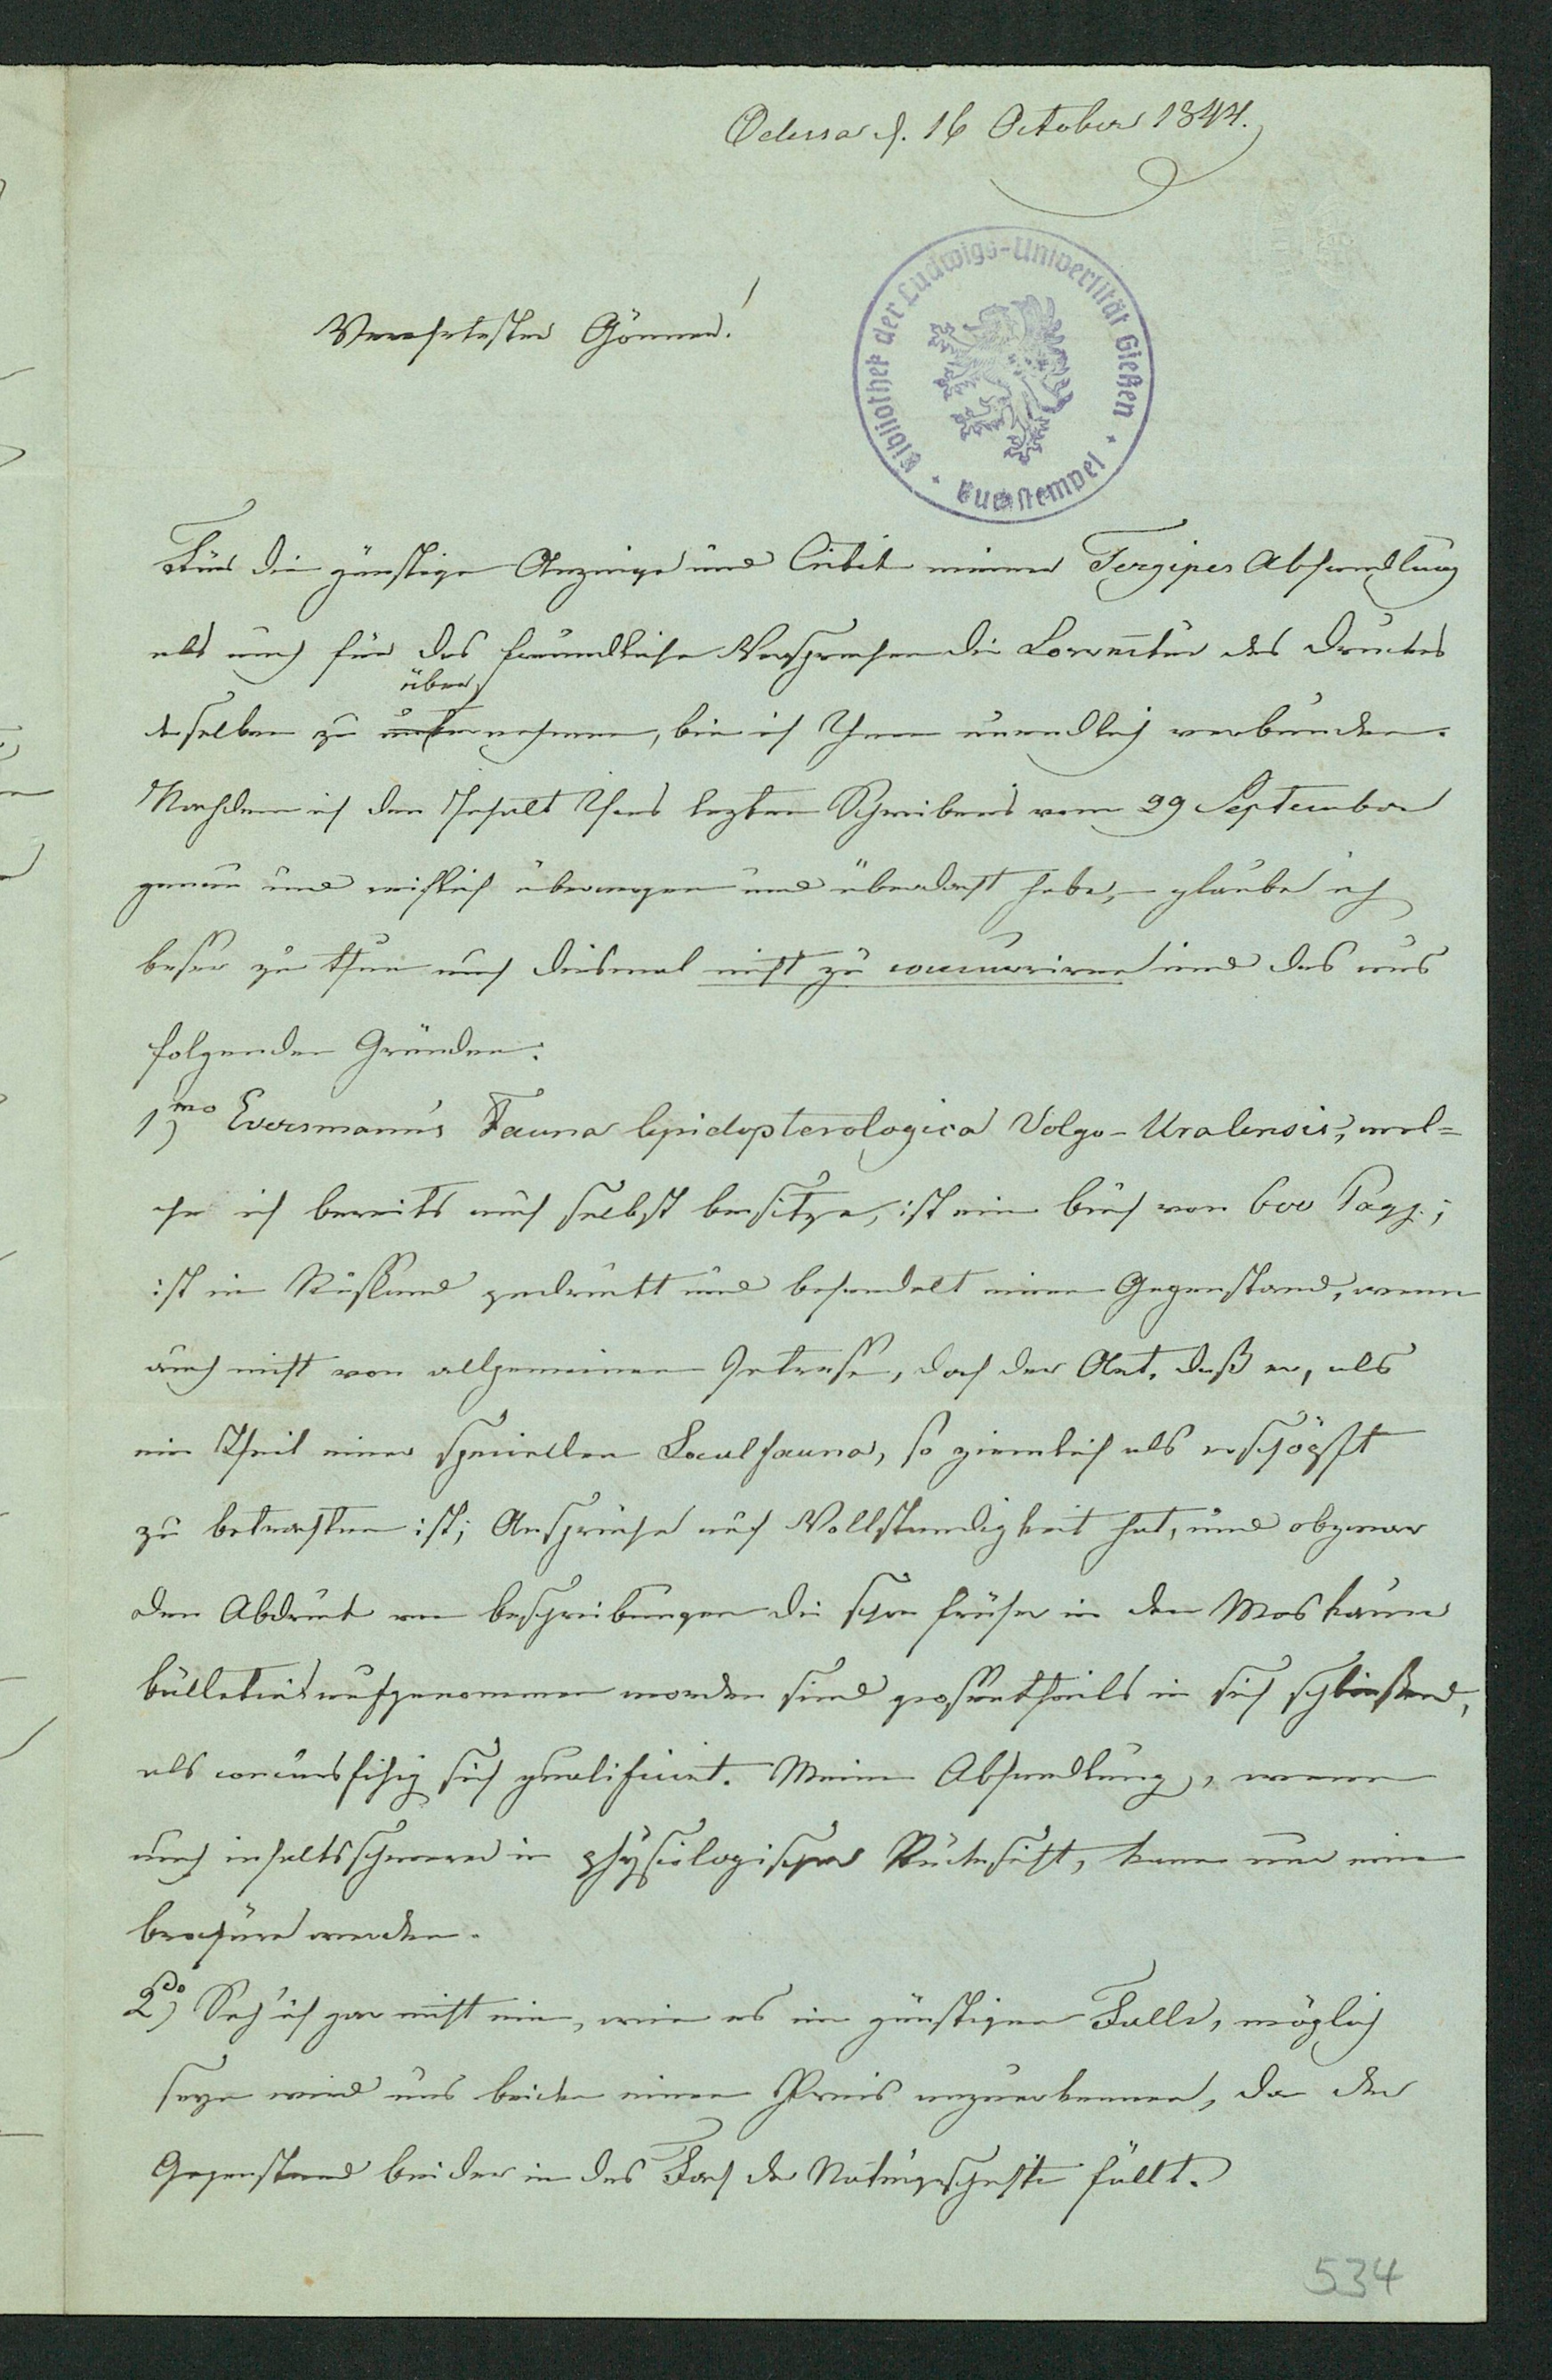 Odessa d. 16 October 1844.
Verehrtester Gönner!
Bibliothek der Ludwigs-Universität Gießen
Buchstempel
Für die günstige Anzeige und Critik meiner Tergipes Abhandlung
als auch für das freundliche Versprechen die Correctur des Druckes
über
deselben zu unternehmen, bin ich Ihnen unendlich verbunden.
Nachdem ich den Inhalt Ihres lezten Schreibens vom 29 September
genau und reiflich überwogen und überdacht habe, – glaube ich
besser zu thun auch diesmal nicht zu concurriren und das aus
folgenden Gründen:
1mo) Eversmann's Fauna lepidopterologica Volgo-Uralensis, wel=
che ich bereits auch selbst besitze, ist ein buch von 600 Pagg.;
ist in Russland gedruckt und behandelt einen Gegenstand, wenn
auch nicht von allgemeinem Intresse, doch der Art, daß er, als
ein Theil einer speciellen Localfauna, so ziemlich als erschöpft
zu betrachten ist; Ansprüche auf Vollständigkeit hat, und obzwar
den Abdruck von beschreibungen die schon früher in den Moskauer
bülletins aufgenommen worden sind grossentheils in sich schliessend,
als concursfähig sich qualificirt. Meine Abhandlung, wenn
auch inhaltsschwerer in physiologischer Rücksicht, kann nur eine
brochüre werden.
2do) Seh' ich gar nicht ein, wie es im günstigen Falle, möglich
seyn wird uns beiden einen Preis anzuerkennen, da der
Gegenstand beider in das Fach der Naturgeschichte fällt.
534